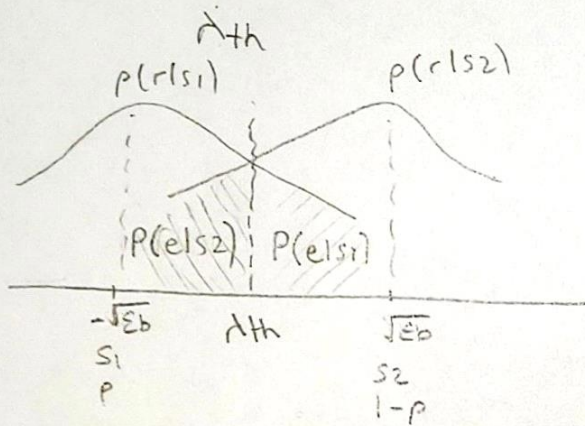 λth
p(r|s1) p(r|s2)
P(e|s2) P(e|s1)
-√εb λth √εb
S1 S2
P 1-p